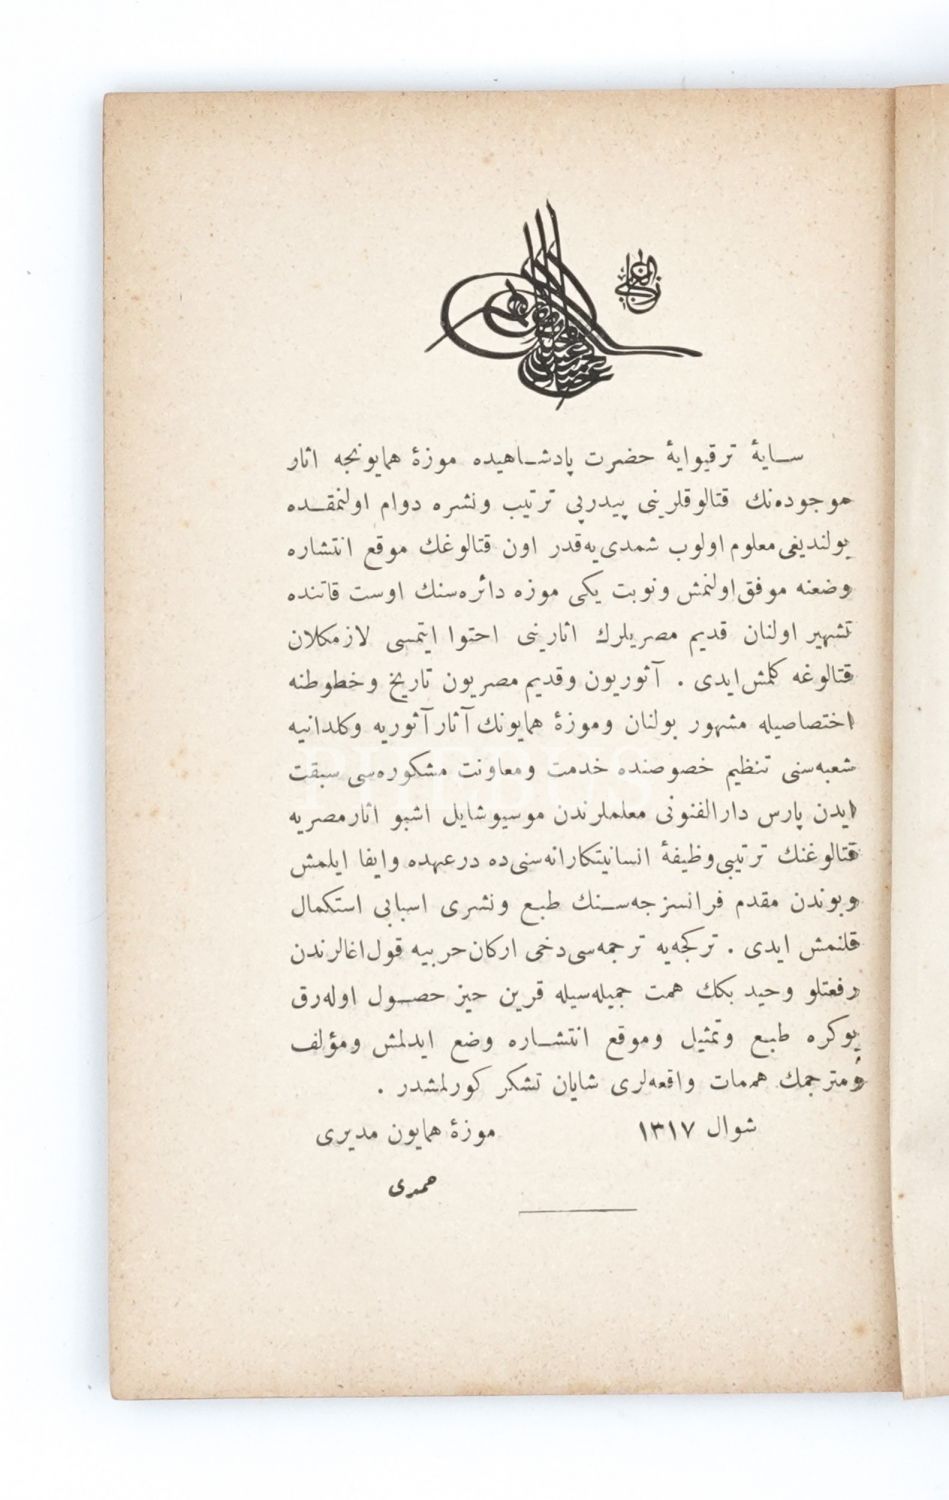 الغازی
سایهٔ ترقیوایهٔ حضرت پادشاهیده موزهٔ همایونجه اثار
موجوده‌نك قتالوقلرینی پیدرپی ترتیب ونشره دوام اولنمقده
بولندیغی معلوم اولوب شمدی‌یه‌قدر اون قتالوغك موقع انتشاره
وضعنه موفق اولنمش ونوبت یکی موزه دائره‌سنك اوست قاتنده
تشهیر اولنان قدیم مصریلرك اثارینی احتوا ایتمسی لازمکلان
قتالوغه کلمش ایدی . آثوریون وقدیم مصریون تاریخ وخطوطنه
اختصاصیله مشهور بولنان وموزهٔ همایونك آثار آثوریه وکلدانیه
شعبه‌سنی تنظیم خصوصنده خدمت ومعاونت مشکوره‌سی سبقت
ایدن پارس دارالفنونی معلملرندن موسیو شایل اشبو اثار مصریه
قتالوغنك ترتیبی وظیفهٔ انسانیتکارانه‌سنی‌ده درعهده وایفا ایلمش
وبوندن مقدم فرانسزجه‌سنك طبع ونشری اسبابی استکمال
قلنمش ایدی . ترکجه‌یه ترجمه‌سی دخی ارکان حربیه قول اغالرندن
رفعتلو وحید بکك همت جمیله‌سیله قرین حیز حصول اوله‌رق
بوکره طبع وتمثیل وموقع انتشاره وضع ایدلمش ومؤلف
ومترجمك هممات واقعه‌لری شایان تشکر کورلمشدر .
شوال ١٣١٧ موزهٔ همایون مدیری
حمدی